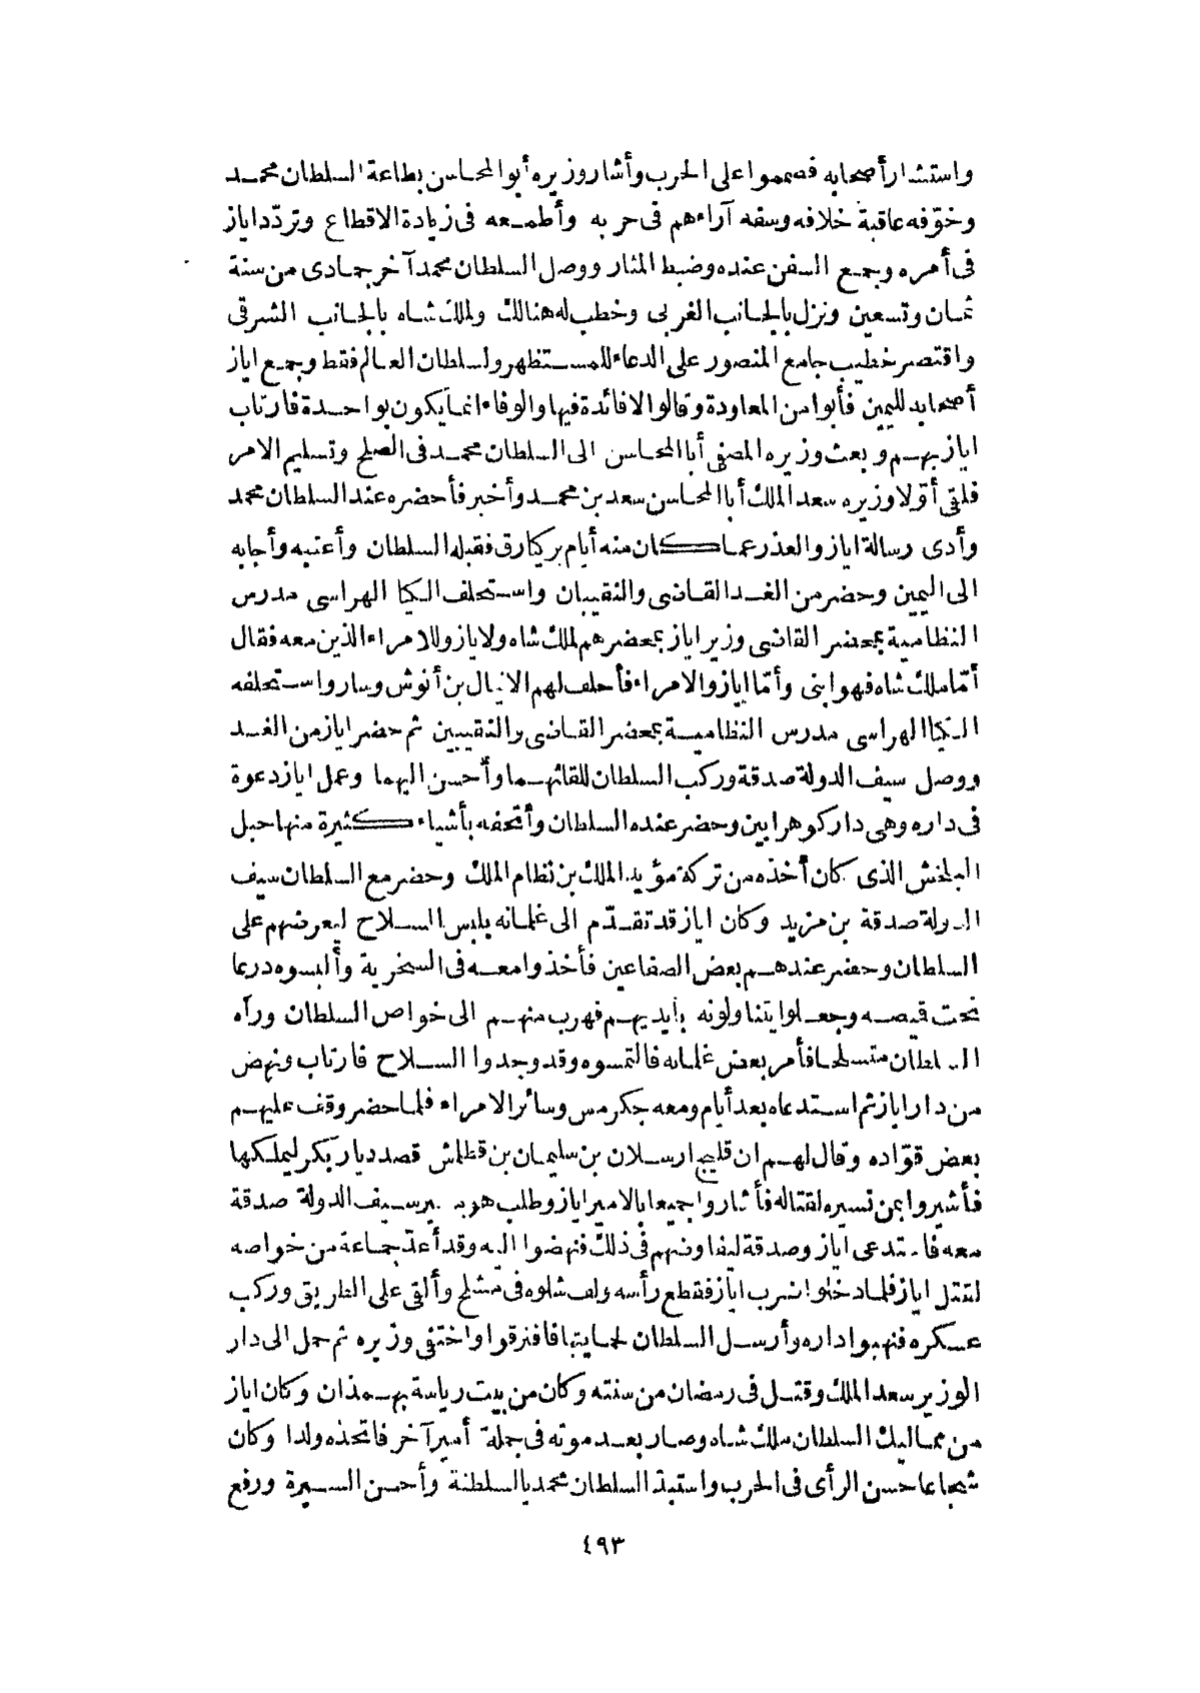 واستشار أصحابه فصمموا على الحرب وأشار وزيره أبو المحاسن بطاعة السلطان محمد
وخوّفه عاقبة خلافه وسفه آراءهم فى حربه وأطمعه فى زيادة الاقطاع وتردّد اياز
فى أمره وجمع السفن عنده وضبط المثار ووصل السلطان محمد آخر جمادى من سنة
ثمان وتسعين ونزل بالجانب الغربى وخطب له هنالك ولملك شاه بالجانب الشرقى
واقتصر خطيب جامع المنصور على الدعاء للمستظهر ولسلطان العالم فقط وجمع اياز
أصحابه لليمين فأبوا من المعاودة وقالوا لا فائدة فيها والوفاء انما يكون بواحدة فارتاب
اياز بهم وبعث وزيره المصفى أبا المحاسن الى السلطان محمد فى الصلح وتسليم الامر
فلقى أوّلا وزيره سعد الملك أبا المحاسن سعد بن محمد وأخبر فأحضره عند السلطان محمد
وأدى رسالة اياز والعذر عما كان منه أيام بركيارق فقبله السلطان وأعتبه وأجابه
الى اليمين وحضر من الغد القاضى والنقيبان واستحلف الكيا الهراسى مدرس
النظامية بمحضر القاضى وزير اياز بمحضرهم لملك شاه ولاياز وللامراء الذين معه فقال
أمّا ملك شاه فهو ابنى وأمّا اياز والامراء فأحلف لهم الا ينال بن أنوش وسار واستحلفه
الكيا الهراسى مدرس النظامية بمحضر القاضى والنقيبين ثم حضر اياز من الغد
ووصل سيف الدولة صدقة وركب السلطان للقائهما وأحسن اليهما وعمل اياز دعوة
فى داره وهى دار كوهرايين وحضر عنده السلطان وأتحفه بأشياء كثيرة منها حبل
البلخش الذى كان أخذه من تركة مؤيد الملك بن نظام الملك وحضر مع السلطان سيف
الدولة صدقة بن مزيد وكان اياز قد تقدّم الى غلمانه بلبس السلاح ليعرضهم على
السلطان وحضر عندهم بعض الصفاعين فأخذوا معه فى السخرية وألبسوه درعا
تحت قيصه وجعلوا يتناولونه بأيديهم فهرب منهم الى خواص السلطان ورآه
السلطان متسلحا فأمر بعض غلمانه فالتمسوه وقد وجدوا السلاح فارتاب ونهض
من دار اياز ثم استدعاه بعد أيام ومعه جكرمس وسائر الامراء فلما حضر وقف عليهم
بعض قوّاده وقال لهم ان قليج ارسلان بن سليمان بن قطلمش قصد ديار بكر ليملكها
فأشيروا بمن نسيره لقتاله فأشاروا جميعا بالامير اياز وطلب هو مسير سيف الدولة صدقة
معه فاستدعى اياز وصدقة ليفاوضهم فى ذلك فنهضوا اليه وقد أعدّ جماعة من خواصه
لقتل اياز فلما دخلوا ضرب اياز فقطع رأسه ولف شلوه فى مشلح وألقى على الطريق وركب
عسكره فنهبوا داره وأرسل السلطان لحمايتها فافترقوا واختفى وزيره ثم حمل الى دار
الوزير سعد الملك وقتل فى رمضان من سنته وكان من بيت رياسة بهمذان وكان اياز
من مماليك السلطان ملك شاه وصار بعد موته فى جملة أمير آخر فاتخذه ولدا وكان
شجاعا حسن الرأى فى الحرب واستبدّ السلطان محمد بالسلطنة وأحسن السيرة ورفع
٤٩٣